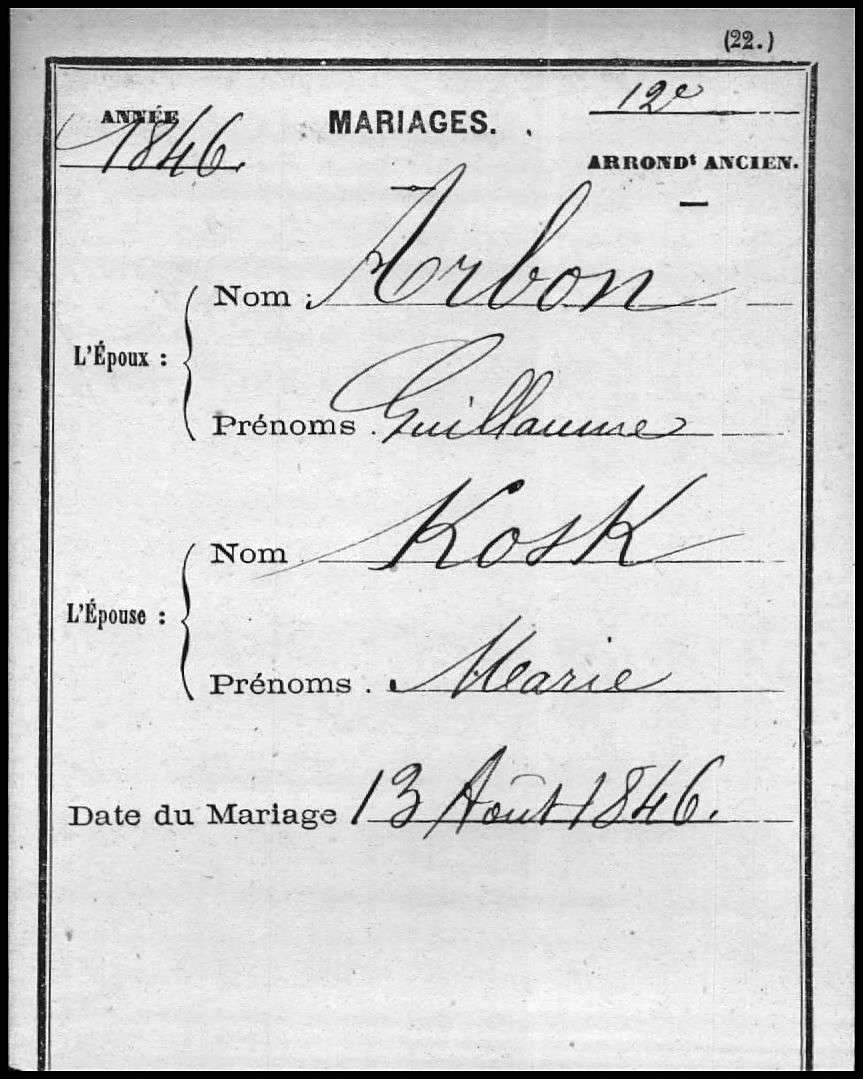 (22.)
ANNÉE
1846.
MARIAGES.
12e
ARRONDt ANCIEN.
L'Époux :
Nom : Arbon
Prénoms . Guillaume
L'Épouse :
Nom Kosk
Prénoms . Marie
Date du Mariage 13 Août 1846.